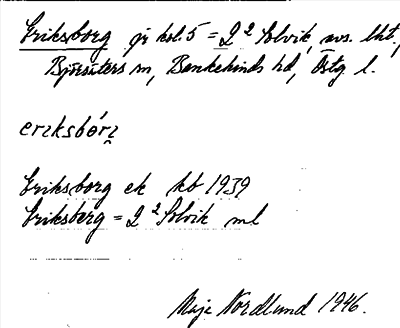 Eriksborg jr kol. 5 = 2² Solvik, avs. lht,
Björsäters sn, Bankekinds hd, Östg. l.
eriksbórj
Eriksborg ek kb 1939
Eriksberg = 2² Solvik ml
Maja Nordlund 1946.